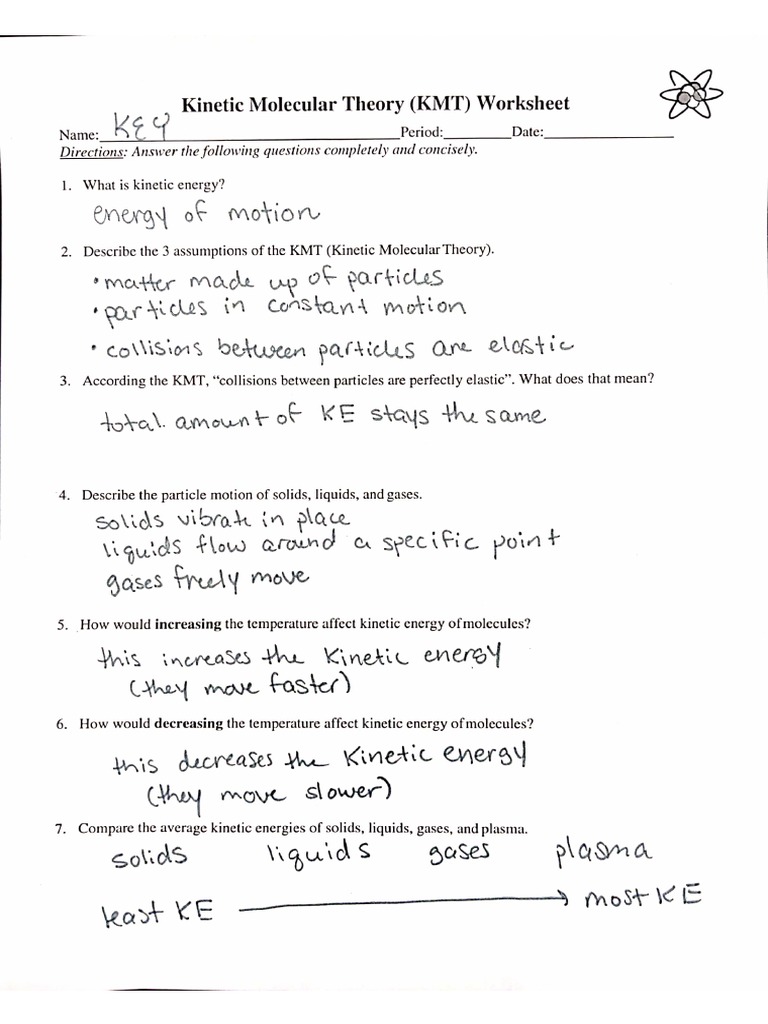 Kinetic Molecular Theory (KMT) Worksheet
Name: KEY Period: Date:
Directions: Answer the following questions completely and concisely.
1. What is kinetic energy?
energy of motion
2. Describe the 3 assumptions of the KMT (Kinetic Molecular Theory).
• matter made up of particles
• particles in constant motion
• collisions between particles are elastic
3. According the KMT, “collisions between particles are perfectly elastic”. What does that mean?
total amount of KE stays the same
4. Describe the particle motion of solids, liquids, and gases.
solids vibrate in place
liquids flow around a specific point
gases freely move
5. How would increasing the temperature affect kinetic energy of molecules?
this increases the kinetic energy
(they move faster)
6. How would decreasing the temperature affect kinetic energy of molecules?
this decreases the kinetic energy
(they move slower)
7. Compare the average kinetic energies of solids, liquids, gases, and plasma.
solids liquids gases plasma
least KE → most KE